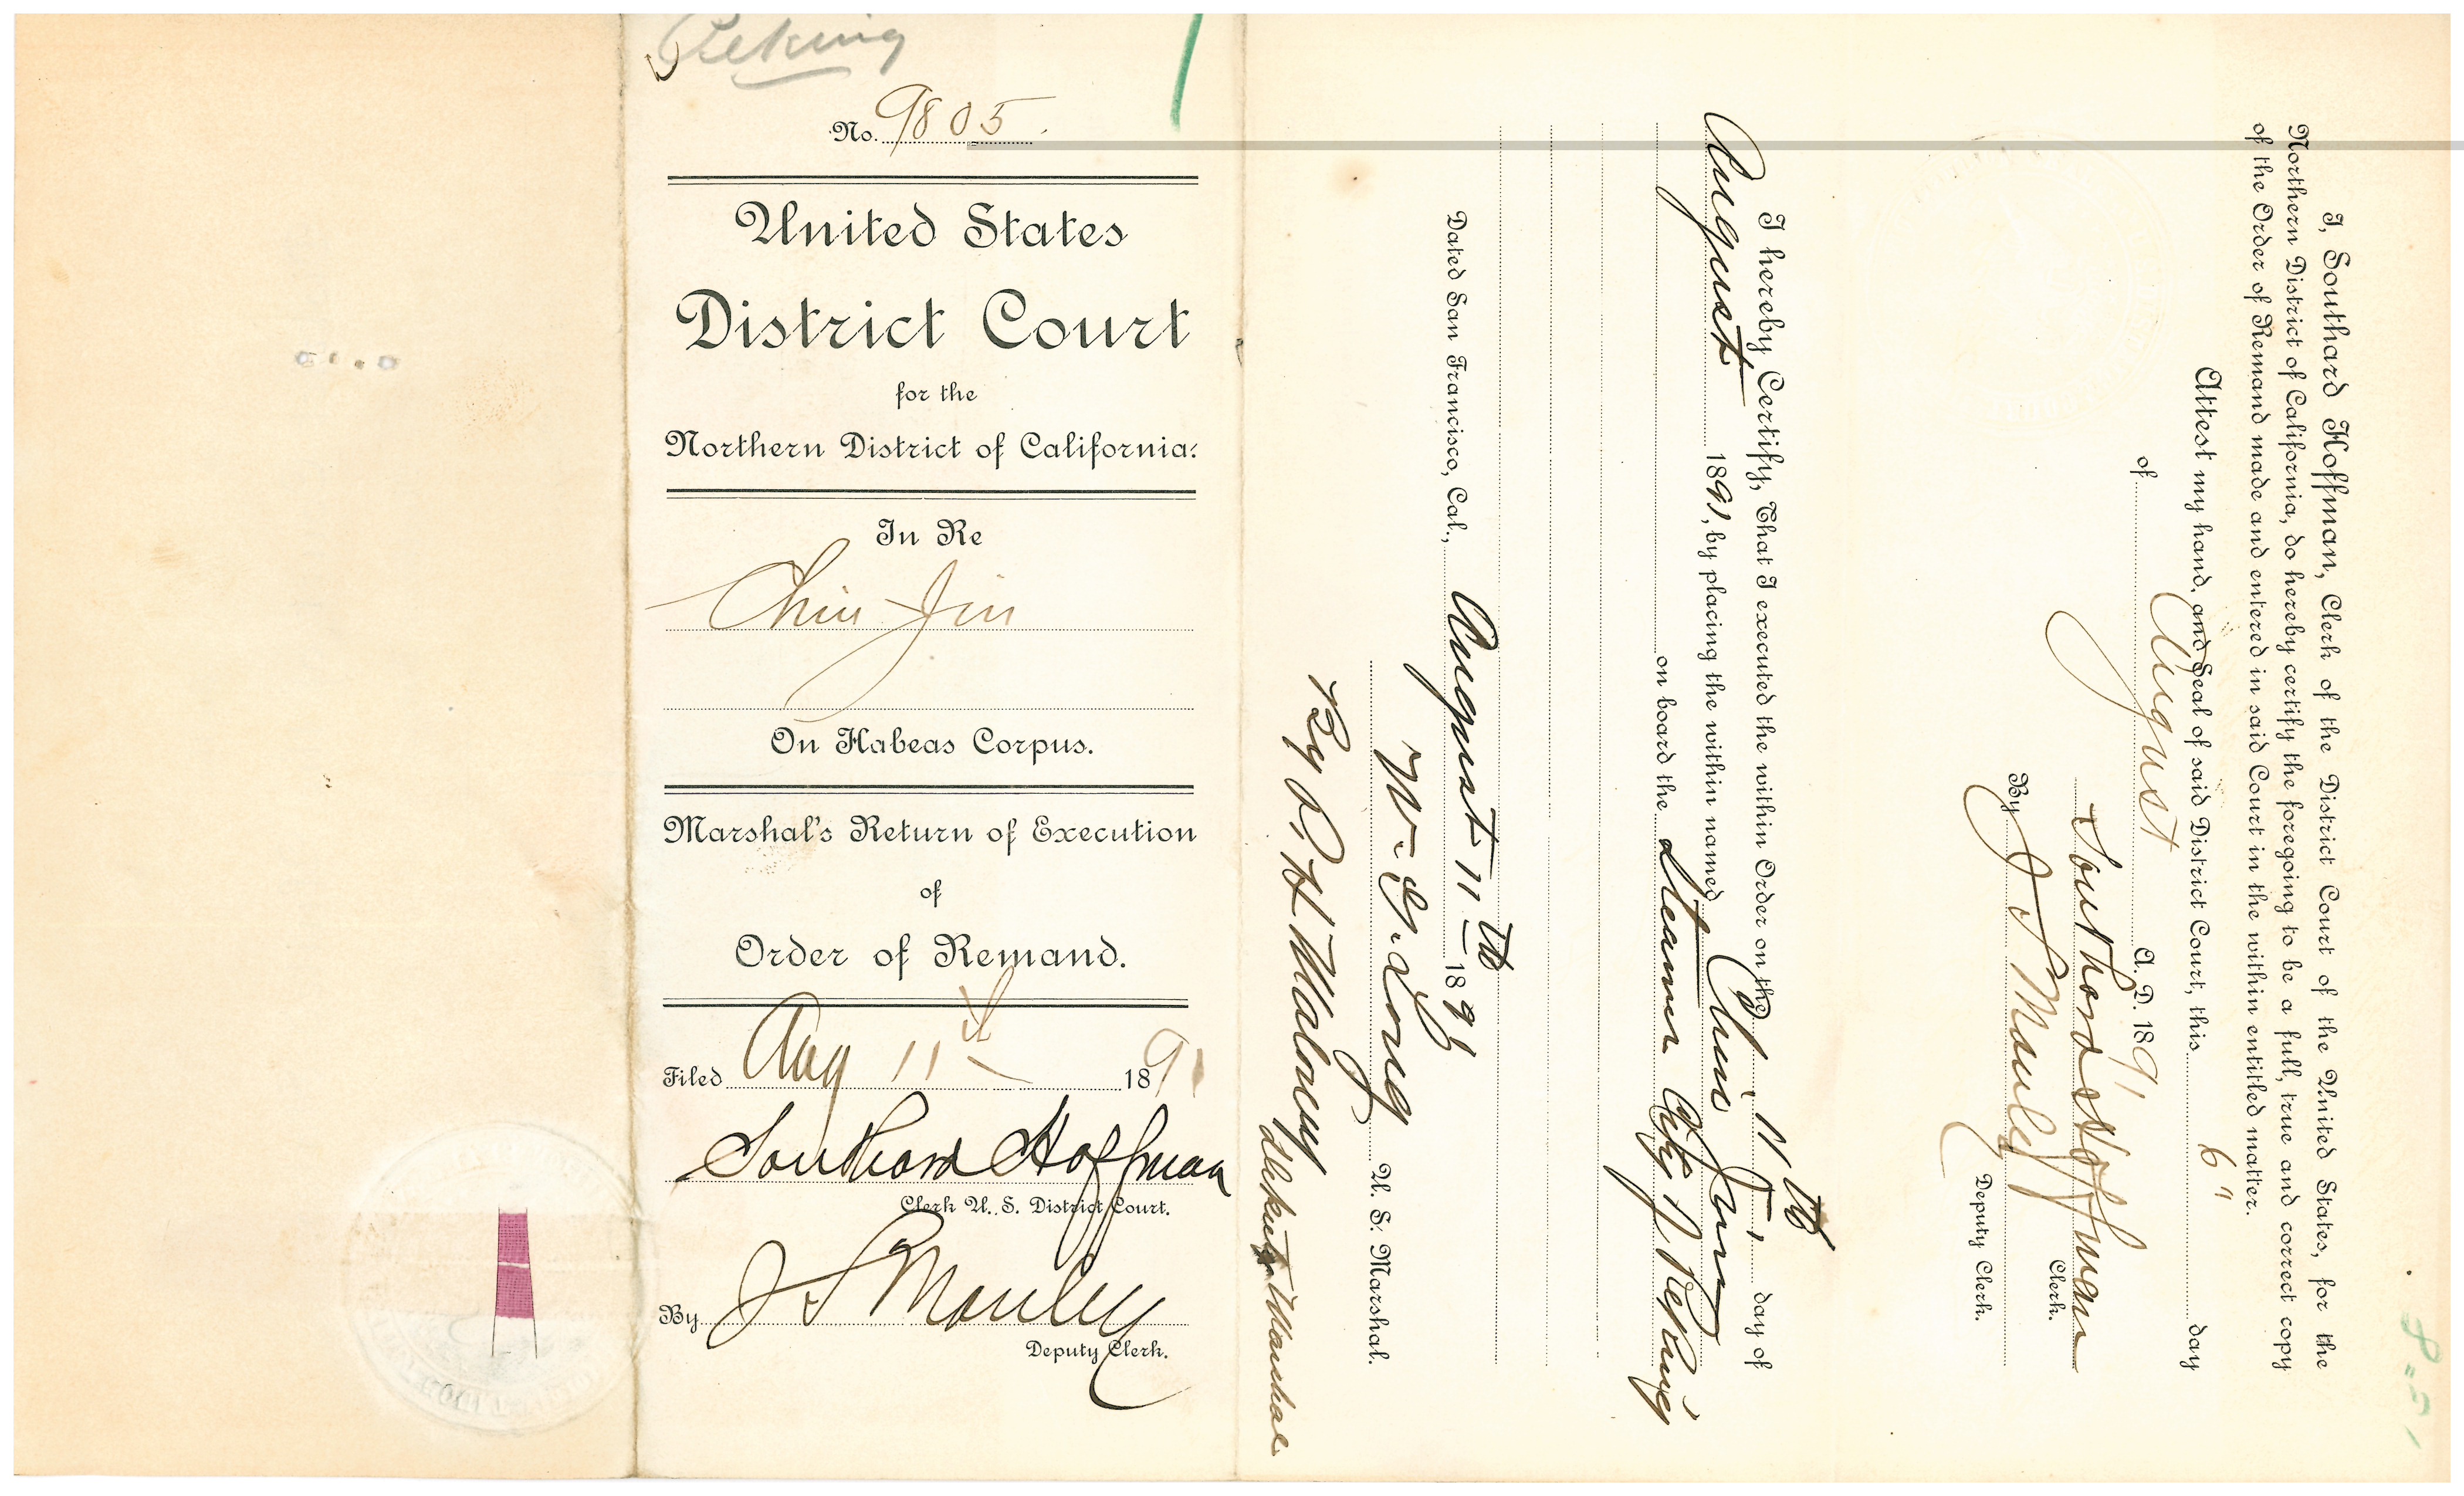 Peking
No. 9805.
United States
District Court
for the
Northern District of California.
In Re
Chin Jin
On Habeas Corpus.
Marshal's Return of Execution
of
Order of Remand.
Filed Aug 11th 1891
Southard Hoffman
Clerk U. S. District Court.
By J S Manley
Deputy Clerk.
I, Southard Hoffman, Clerk of the District Court of the United States, for the
Northern District of California, do hereby certify the foregoing to be a full, true and correct copy
of the Order of Remand made and entered in said Court in the within entitled matter.
Attest my hand, and Seal of said District Court, this 6" day
of August A. D. 1891
Southard Hoffman
Clerk.
By J S Manley
Deputy Clerk.
I hereby Certify, That I executed the within Order on the 11th day of
August 1891, by placing the within named Chin Jin
on board the Steamer City of Peking
Dated San Francisco, Cal., August 11th 1891
W. G. Long
U. S. Marshal.
By Malowny
Marshal